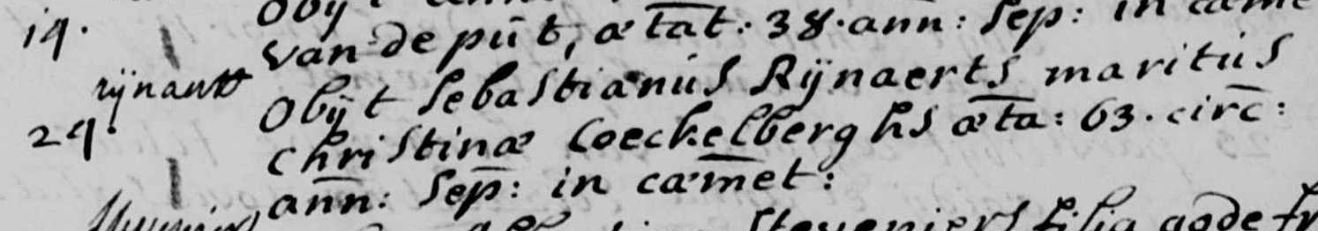 19.
van de pūt, ætat: 38. ann: sep: in cæme
rijnaert
obijt Sebastianus Rijnaerts maritus
29.
christinæ Coeckelberghs æta: 63. circ:
ann: sep: in cæmet:
Steveniers filia godefr